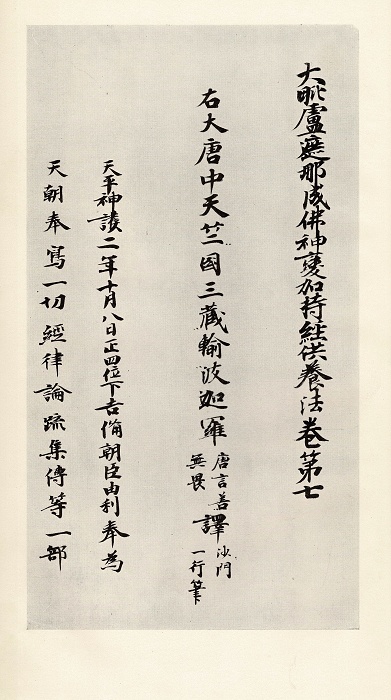 大毗盧遮那成佛神變加持經供養法卷第七
右大唐中天竺國三藏輸波迦羅唐言善無畏譯沙門一行筆
天平神護二年十月八日正四位下吉備朝臣由利奉為
天朝奉寫一切經律論疏集傳等一部